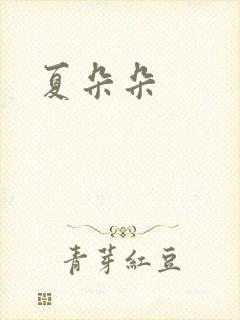 夏朵朵
青芽紅豆